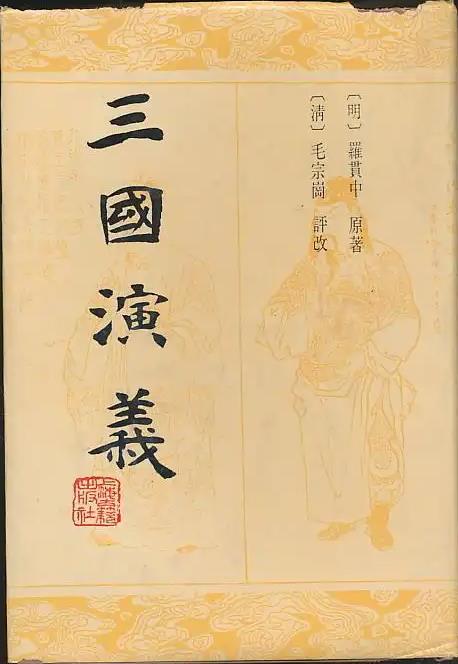 〔明〕羅貫中 原著
〔清〕毛宗崗 評改
三國演義
出版社